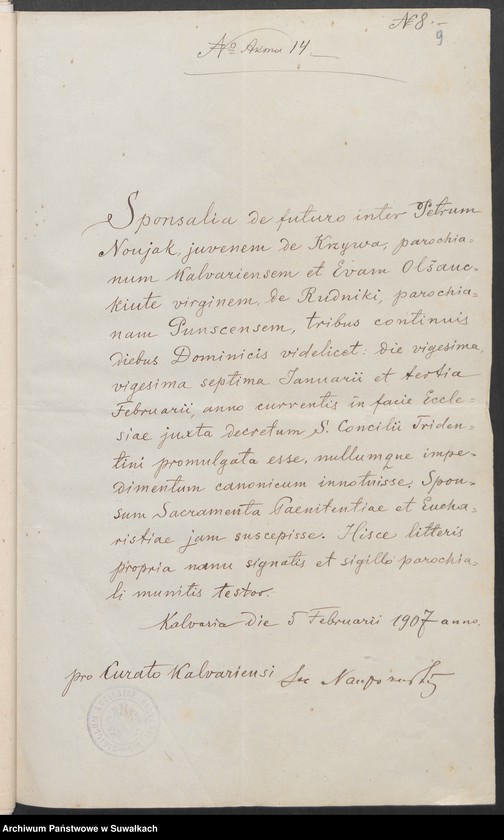 № 8.—
9
№ Акта 14.—
Sponsalia de futuro inter Petrum
Noujak, juvenem de Krzywa, parochia-
num Kalvariensem et Evam Olšauc-
kiute virginem, de Rudniki, parochia-
nam Punscensem, tribus continuis
diebus Dominicis videlicet: die vigesima,
vigesima septima Januarii et tertia
Februarii, anno currentis in facie Eccle-
siae juxta decretum S. Concilii Triden-
tini promulgata esse, nullumque impe-
dimentum canonicum innotuisse; Spon-
sum Sacramenta Paenitentiae et Eucha-
ristiae jam suscepisse. Hisce litteris
propria manu signatis et sigillo parochia-
li munitis testor.
Kalvaria die 5 Februarii 1907 anno.
pro Curato Kalvariensi
Archiwum Państwowe w Suwałkach